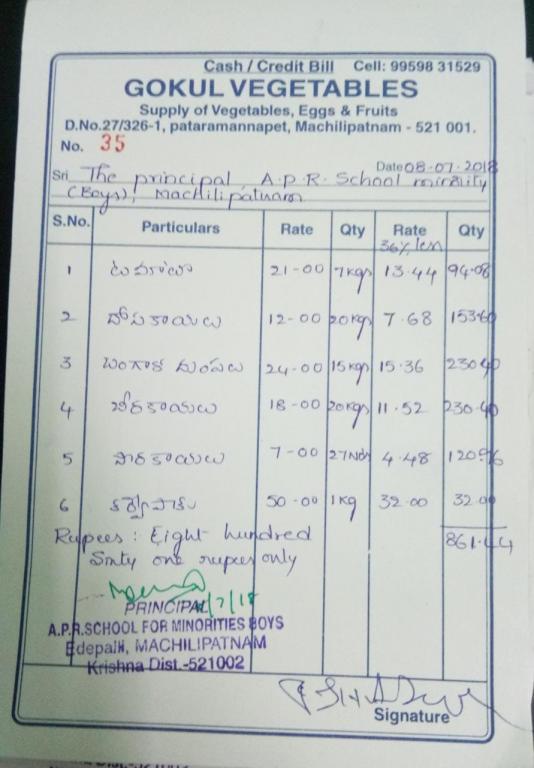 Cash / Credit Bill Cell: 99598 31529
GOKUL VEGETABLES
Supply of Vegetables, Eggs & Fruits
D.No.27/326-1, pataramannapet, Machilipatnam - 521 001.
No. 35
Date 08-07-2018
Sri The principal, A.P.R. School minority
(Boys), Machilipatnam
S.No. Particulars Rate Qty Rate Qty
36% less
1 టమాటా 21-00 7kgs 13.44 94.08
2 దోసకాయలు 12-00 20kgs 7.68 153.60
3 బంగాళ దుంపలు 24-00 15kgs 15.36 230.40
4 బీరకాయలు 18-00 20kgs 11.52 230.40
5 సొరకాయలు 7-00 27Nos 4.48 120.96
6 కర్వేపాకు 50-00 1kg 32.00 32.00
Rupees : Eight hundred 861.44
Sixty one rupees only
PRINCIPAL /7/18
A.P.R.SCHOOL FOR MINORITIES BOYS
Edepalli, MACHILIPATNAM
Krishna Dist.-521002
Signature